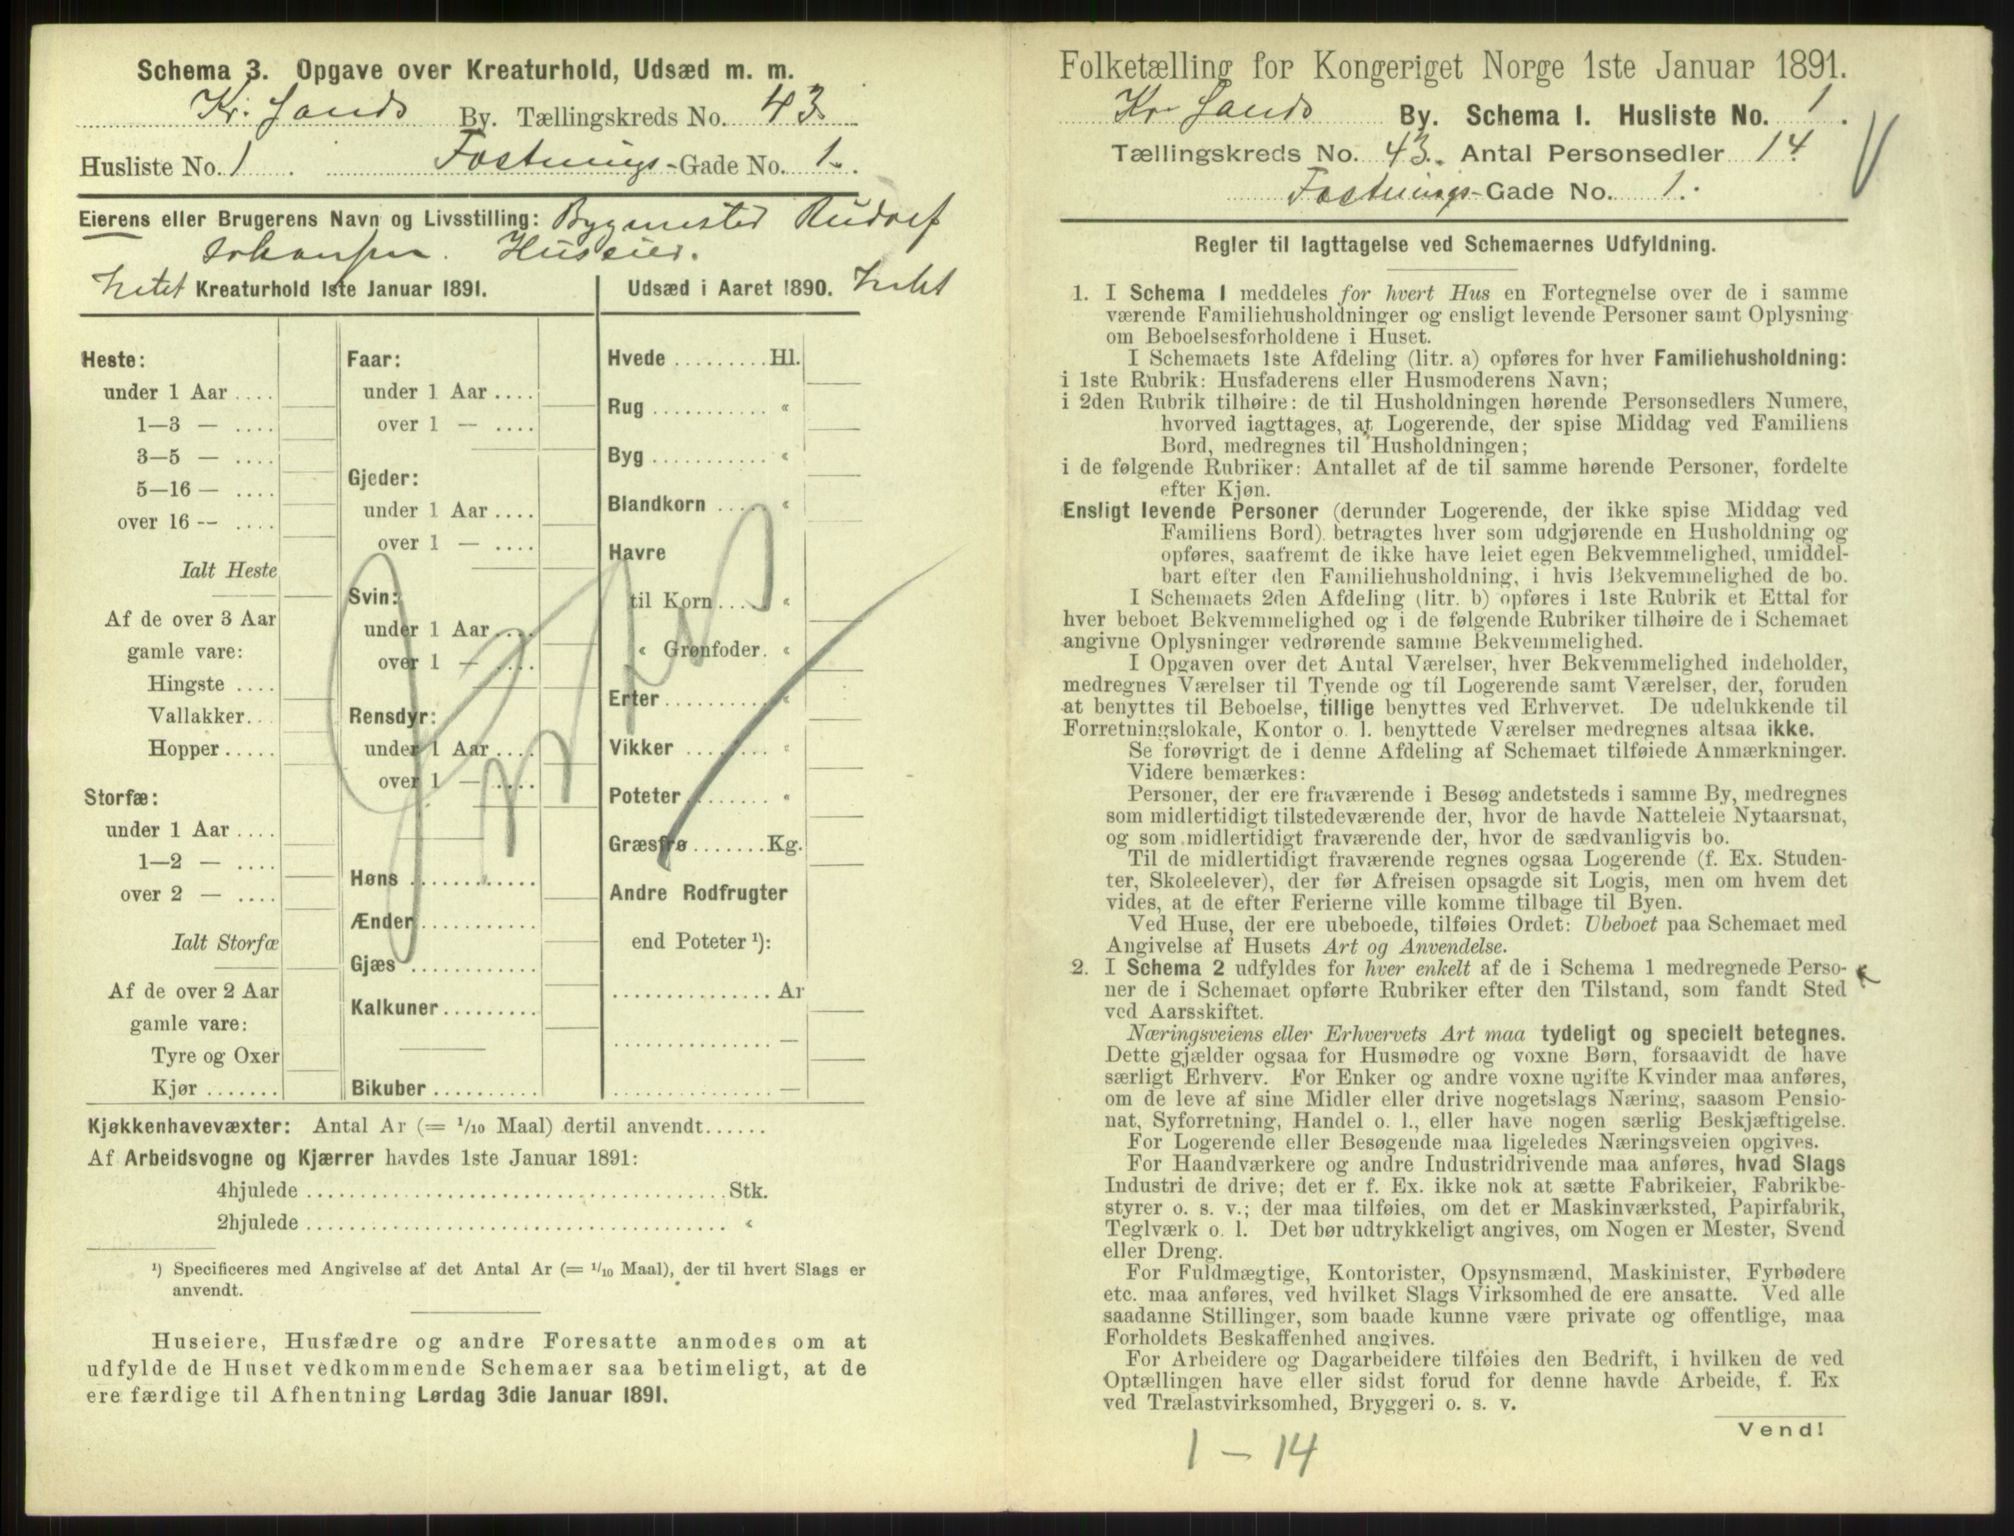 Schema 3. Opgave over Kreaturhold, Udsæd m. m.
Kr. Sands By. Tællingskreds No. 43
Husliste No. 1 Festnings-Gade No. 1.
Eierens eller Brugerens Navn og Livsstilling: Bygmester Rudolf
Johansen. Huseier.
Intet Kreaturhold 1ste Januar 1891.
Heste:
under 1 Aar ....
1—3 — ....
3—5 — ....
5—16 — ....
over 16 — ....
Ialt Heste
Af de over 3 Aar
gamle vare:
Hingste ....
Vallakker...
Hopper.....
Storfæ:
under 1 Aar ....
1—2 — ....
over 2 — ....
Ialt Storfæ
Af de over 2 Aar
gamle vare:
Tyre og Oxer
Kjør .......
Faar:
under 1 Aar ....
over 1 — ....
Gjeder:
under 1 Aar ....
over 1 — ....
Svin:
under 1 Aar ....
over 1 — ....
Rensdyr:
under 1 Aar ....
over 1 — ....
Høns ............
Ænder ............
Gjæs ............
Kalkuner .........
Bikuber ..........
Udsæd i Aaret 1890. Intet
Hvede ......... Hl.
Rug ........... «
Byg ........... «
Blandkorn ..... «
Havre
til Korn .... «
« Grønfoder. «
Erter .......... «
Vikker ........ «
Poteter ....... «
Græsfrø ....... Kg.
Andre Rodfrugter
end Poteter ¹):
............... Ar
............... —
............... —
Kjøkkenhavevæxter: Antal Ar (= 1/10 Maal) dertil anvendt......
Af Arbeidsvogne og Kjærrer havdes 1ste Januar 1891:
4hjulede ...................................... Stk.
2hjulede ...................................... «
¹) Specificeres med Angivelse af det Antal Ar (= 1/10 Maal), der til hvert Slags er
anvendt.
Huseiere, Husfædre og andre Foresatte anmodes om at
udfylde de Huset vedkommende Schemaer saa betimeligt, at de
ere færdige til Afhentning Lørdag 3die Januar 1891.
Folketælling for Kongeriget Norge 1ste Januar 1891.
Kr Sands By. Schema I. Husliste No. 1.
Tællingskreds No. 43. Antal Personsedler 14
Festnings-Gade No. 1.
Regler til Iagttagelse ved Schemaernes Udfyldning.
1. I Schema 1 meddeles for hvert Hus en Fortegnelse over de i samme
værende Familiehusholdninger og ensligt levende Personer samt Oplysning
om Beboelsesforholdene i Huset.
I Schemaets 1ste Afdeling (litr. a) opføres for hver Familiehusholdning:
i 1ste Rubrik: Husfaderens eller Husmoderens Navn;
i 2den Rubrik tilhøire: de til Husholdningen hørende Personsedlers Numere,
hvorved iagttages, at Logerende, der spise Middag ved Familiens
Bord, medregnes til Husholdningen;
i de følgende Rubriker: Antallet af de til samme hørende Personer, fordelte
efter Kjøn.
Ensligt levende Personer (derunder Logerende, der ikke spise Middag ved
Familiens Bord) betragtes hver som udgjørende en Husholdning og
opføres, saafremt de ikke have leiet egen Bekvemmelighed, umiddel-
bart efter den Familiehusholdning, i hvis Bekvemmelighed de bo.
I Schemaets 2den Afdeling (litr. b) opføres i 1ste Rubrik et Ettal for
hver beboet Bekvemmelighed og i de følgende Rubriker tilhøire de i Schemaet
angivne Oplysninger vedrørende samme Bekvemmelighed.
I Opgaven over det Antal Værelser, hver Bekvemmelighed indeholder,
medregnes Værelser til Tyende og til Logerende samt Værelser, der, foruden
at benyttes til Beboelse, tillige benyttes ved Erhvervet. De udelukkende til
Forretningslokale, Kontor o. l. benyttede Værelser medregnes altsaa ikke.
Se forøvrigt de i denne Afdeling af Schemaet tilføiede Anmærkninger.
Videre bemærkes:
Personer, der ere fraværende i Besøg andetsteds i samme By, medregnes
som midlertidigt tilstedeværende der, hvor de havde Natteleie Nytaarsnat,
og som midlertidigt fraværende der, hvor de sædvanligvis bo.
Til de midlertidigt fraværende regnes ogsaa Logerende (f. Ex. Studen-
ter, Skoleelever), der før Afreisen opsagde sit Logis, men om hvem det
vides, at de efter Ferierne ville komme tilbage til Byen.
Ved Huse, der ere ubeboede, tilføies Ordet: Ubeboet paa Schemaet med
Angivelse af Husets Art og Anvendelse.
2. I Schema 2 udfyldes for hver enkelt af de i Schema 1 medregnede Perso-
ner de i Schemaet opførte Rubriker efter den Tilstand, som fandt Sted
ved Aarsskiftet.
Næringsveiens eller Erhvervets Art maa tydeligt og specielt betegnes.
Dette gjælder ogsaa for Husmødre og voxne Børn, forsaavidt de have
særligt Erhverv. For Enker og andre voxne ugifte Kvinder maa anføres,
om de leve af sine Midler eller drive nogetslags Næring, saasom Pensio-
nat, Syforretning, Handel o. l., eller have nogen særlig Beskjæftigelse.
For Logerende eller Besøgende maa ligeledes Næringsveien opgives.
For Haandværkere og andre Industridrivende maa anføres, hvad Slags
Industri de drive; det er f. Ex. ikke nok at sætte Fabrikeier, Fabrikbe-
styrer o. s. v.; der maa tilføies, om det er Maskinværksted, Papirfabrik,
Teglværk o. l. Det bør udtrykkeligt angives, om Nogen er Mester, Svend
eller Dreng.
For Fuldmægtige, Kontorister, Opsynsmænd, Maskinister, Fyrbødere
etc. maa anføres, ved hvilket Slags Virksomhed de ere ansatte. Ved alle
saadanne Stillinger, som baade kunne være private og offentlige, maa
Forholdets Beskaffenhed angives.
For Arbeidere og Dagarbeidere tilføies den Bedrift, i hvilken de ved
Optællingen have eller sidst forud for denne havde Arbeide, f. Ex
ved Trælastvirksomhed, Bryggeri o. s. v.
Vend!
1 - 14